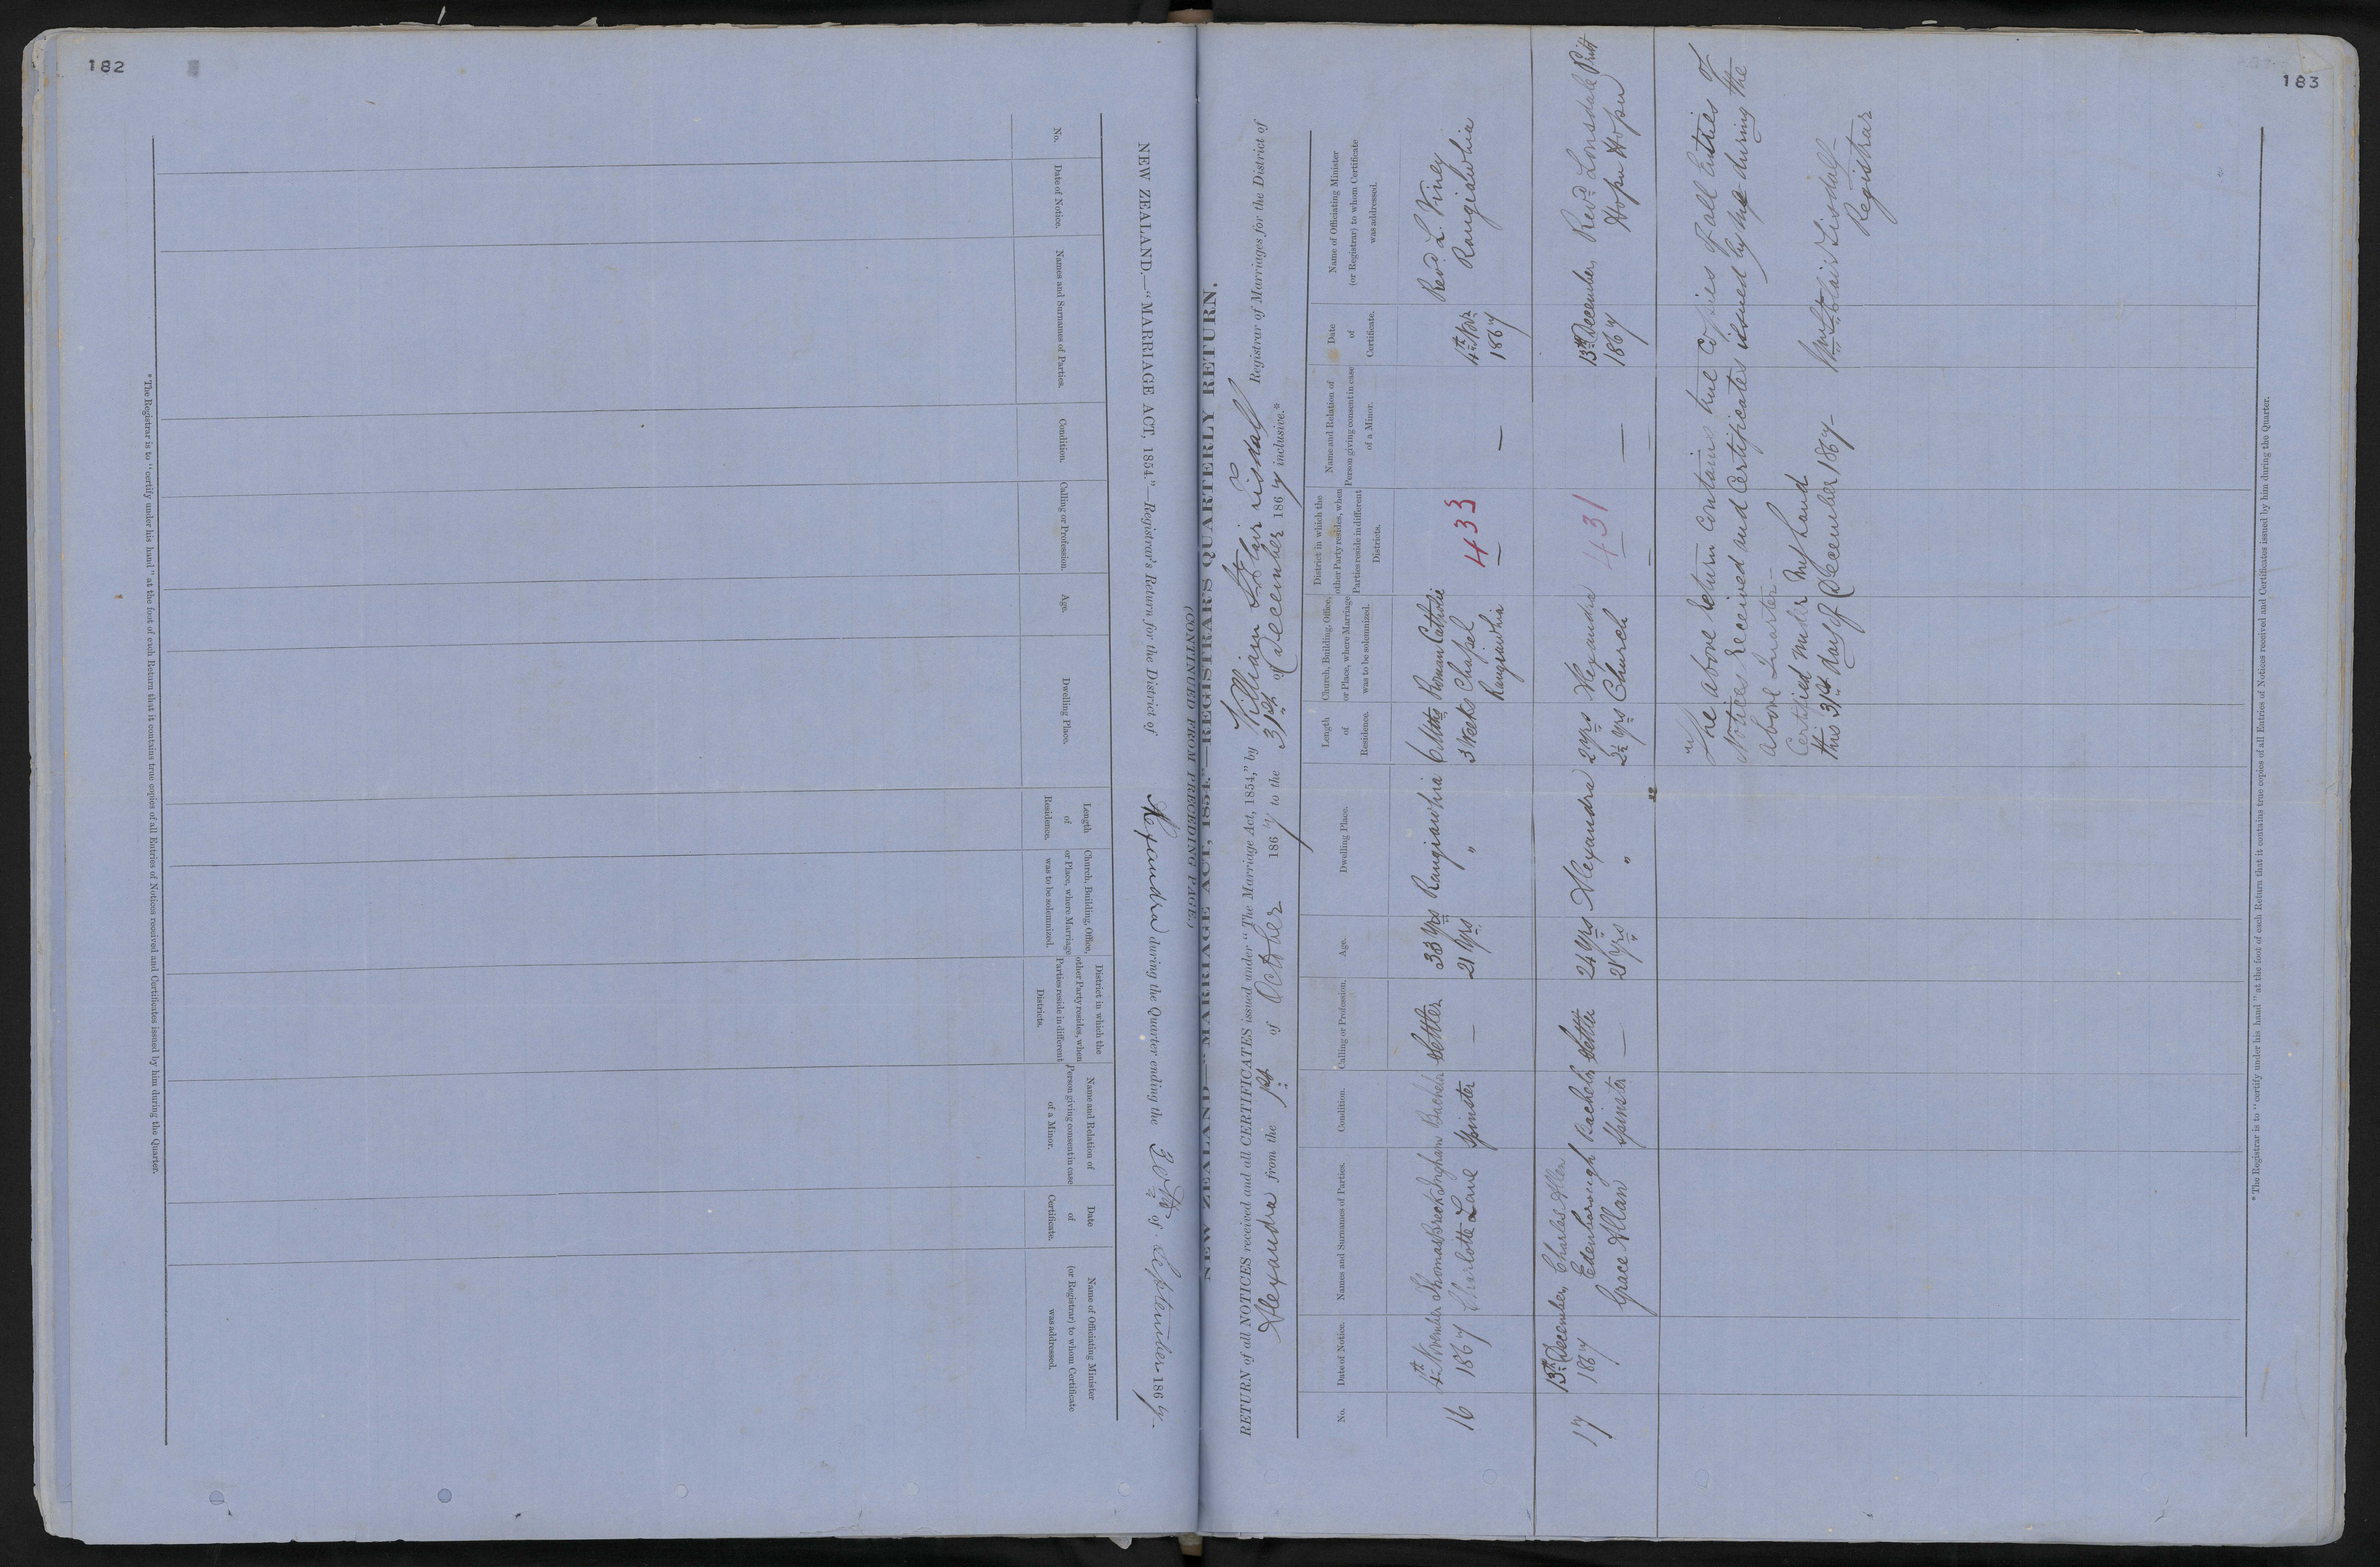 182
NEW ZEALAND.—"MARRIAGE ACT, 1854."—Registrar's Return for the District of Alexandra during the Quarter ending the 30th of September 1867.
(CONTINUED FROM PRECEDING PAGE.)
No.
Date of Notice.
Names and Surnames of Parties.
Condition.
Calling or Profession.
Age.
Dwelling Place.
Length of Residence.
Church, Building, Office, or Place, where Marriage was to be solemnized.
District in which the other Party resides, when Parties reside in different Districts.
Name and Relation of Person giving consent in case of a Minor.
Date of Certificate.
Name of Officiating Minister (or Registrar) to whom Certificate was addressed.
*The Registrar is to "certify under his hand" at the foot of each Return that it contains true copies of all Entries of Notices received and Certificates issued by him during the Quarter.
183
NEW ZEALAND—"MARRIAGE ACT, 1854."—REGISTRAR'S QUARTERLY RETURN.
RETURN of all NOTICES received and all CERTIFICATES issued under "The Marriage Act, 1854," by William St Clair Tisdall Registrar of Marriages for the District of
Alexandra from the 1st of October 1867 to the 31st of December 1867 inclusive.*
No.
Date of Notice.
Names and Surnames of Parties.
Condition.
Calling or Profession.
Age.
Dwelling Place.
Length of Residence.
Church, Building, Office, or Place, where Marriage was to be solemnized.
District in which the other Party resides, when Parties reside in different Districts.
Name and Relation of Person giving consent in case of a Minor.
Date of Certificate.
Name of Officiating Minister (or Registrar) to whom Certificate was addressed.
4th November Thomas Breckingham Bachelor Settler 33 yrs Rangiawhia 6 Mths Roman Catholic 433 4th Nov. Revd. L. Viney
16 1867 Charlotte Lane Spinster — 21 yrs " 3 Weeks Chapel — — 1867 Rangiawhia
Rangiawhia
13th December Charles Allen
17 1867 Edenborough Bachelor Settler 24 yrs Alexandra 2 yrs Alexandra 431 13th December Revd Lonsdale Pritt
Grace Allan Spinster — 21 yrs " 2½ yrs Church — — 1867 Hopu Hopu
"The above Return contains true copies of all Entries of
Notices Received and Certificates issued by me during the
above Quarter—
Certified under my hand
this 31st day of December 1867—
Wm St Clair Tisdall
Registrar
*The Registrar is to "certify under his hand" at the foot of each Return that it contains true copies of all Entries of Notices received and Certificates issued by him during the Quarter.